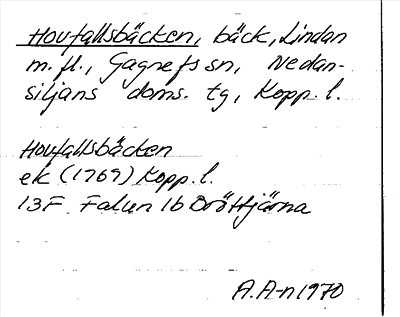 Hovfallsbäcken, bäck, Lindan
m.fl., Gagnefs sn, Nedan-
siljans doms. tg, Kopp. l.
Hovfallsbäcken
ek (1769) Kopp. l.
13F Falun 1b Dröttjärna
A.A-n 1970